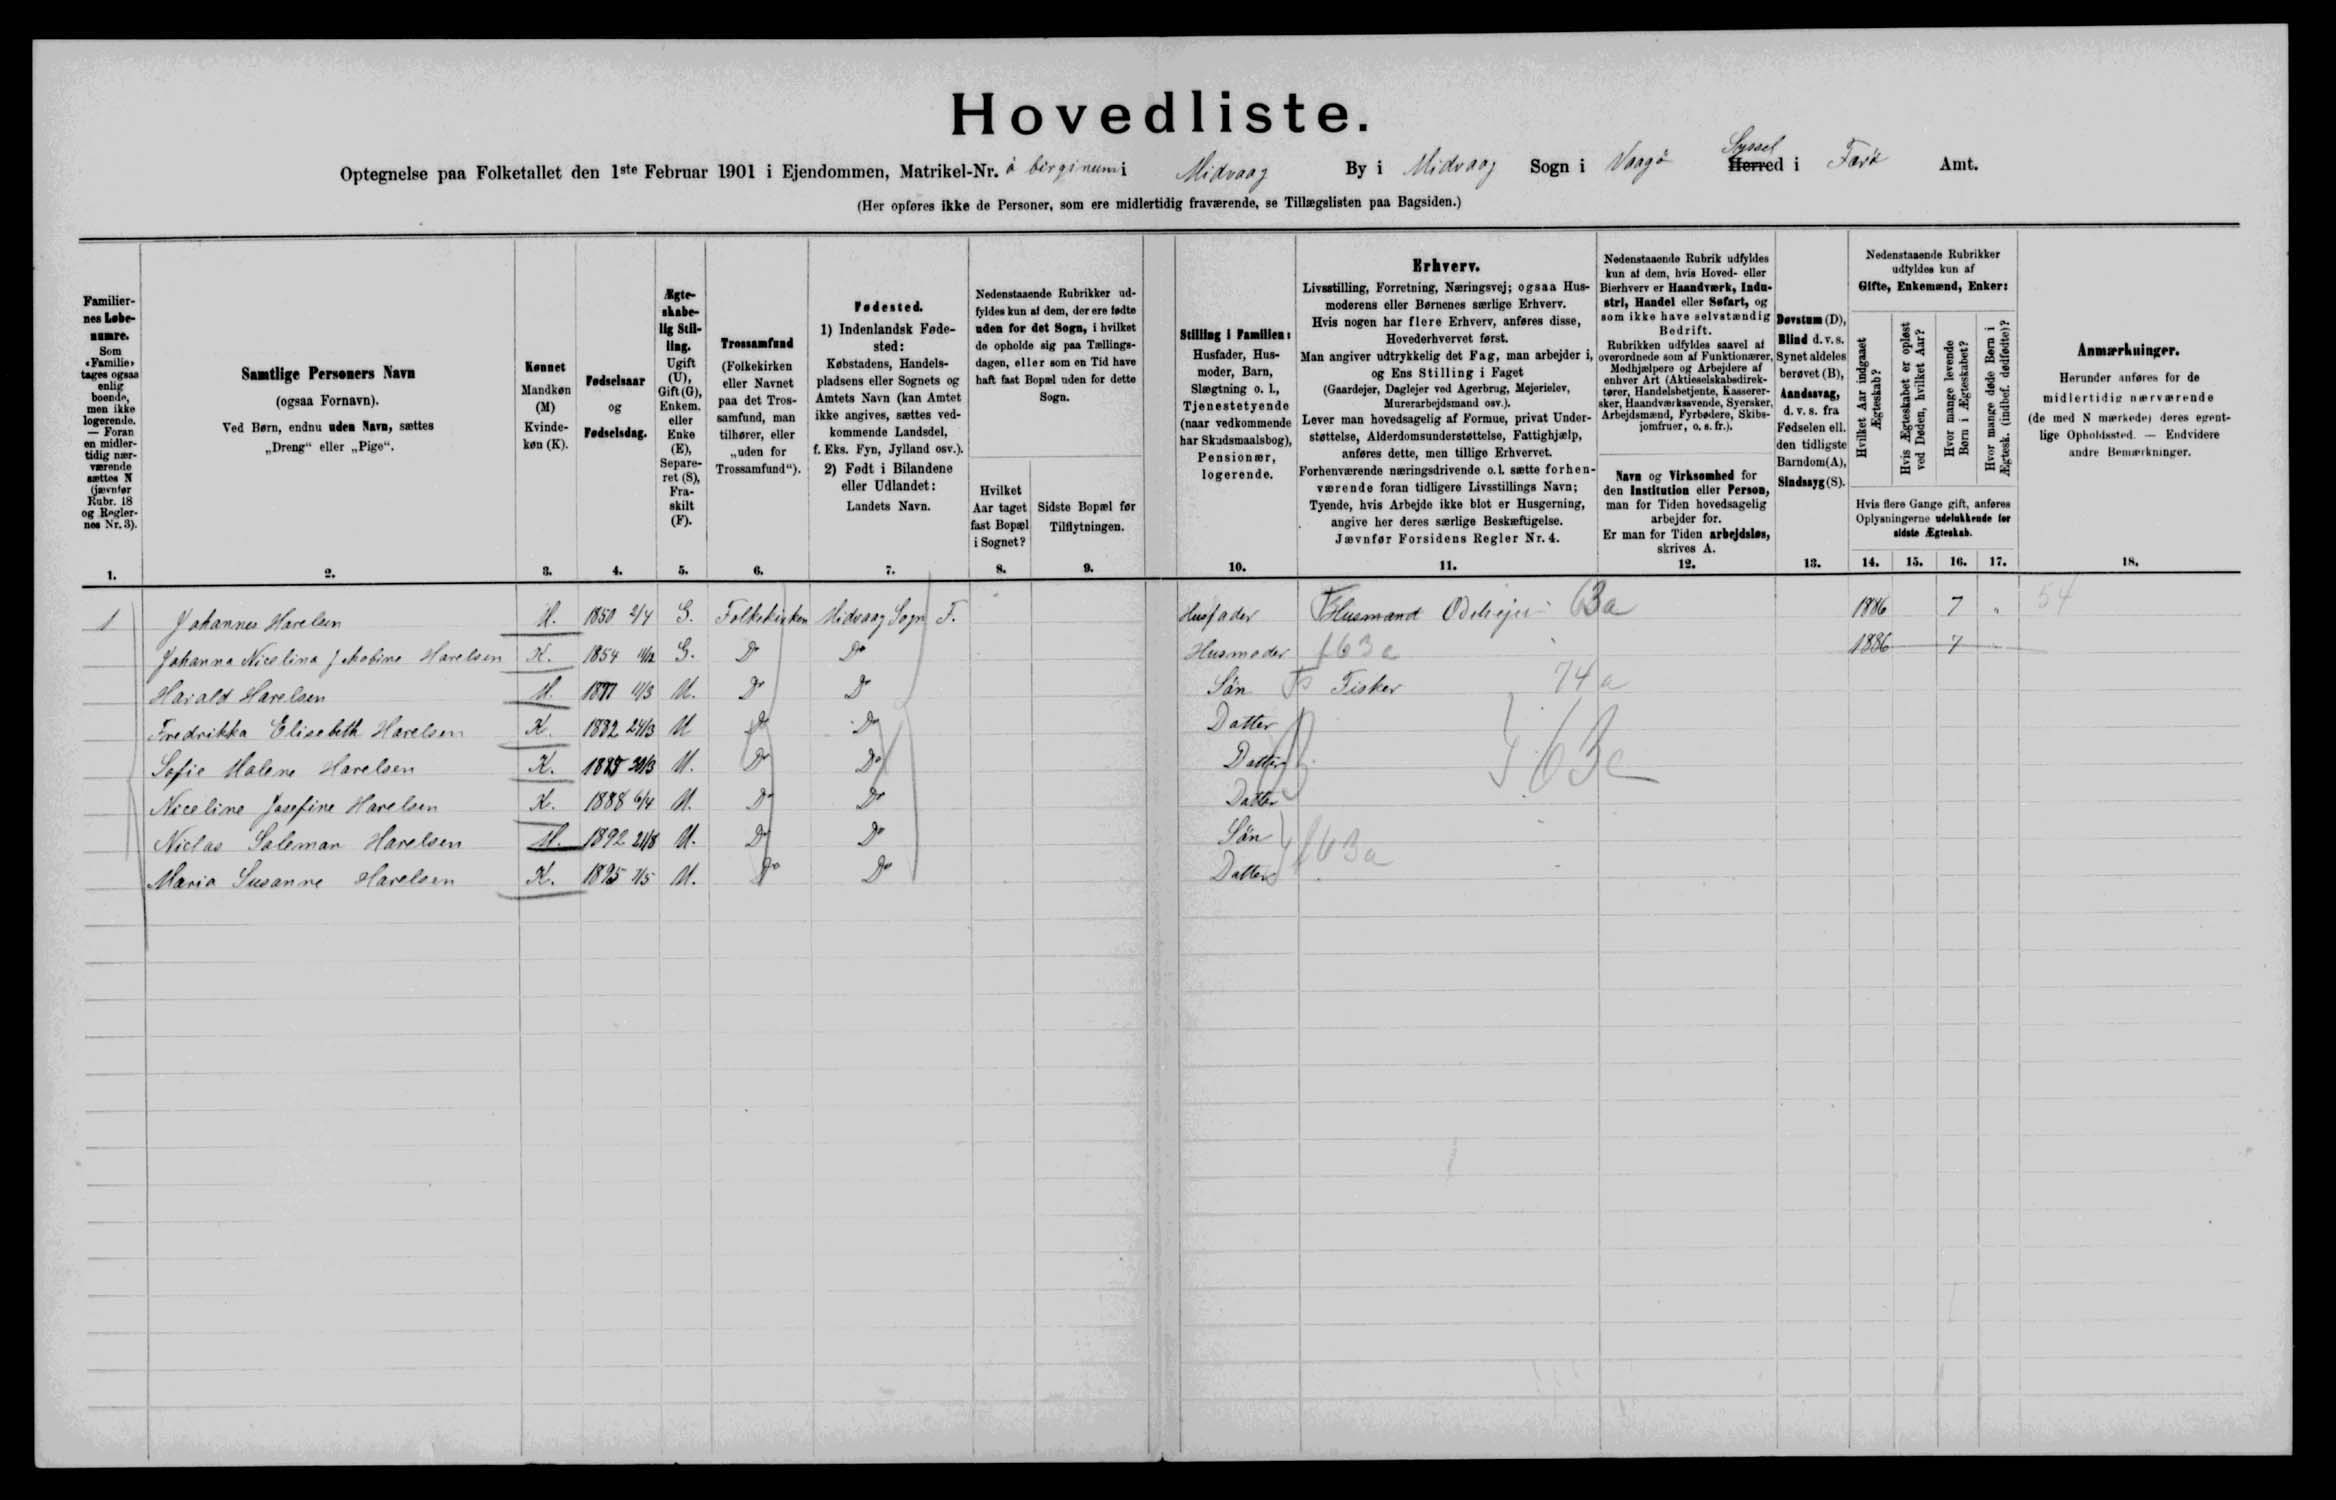 Hovedliste.
Optegnelse paa Folketallet den 1ste Februar 1901 i Ejendommen, Matrikel-Nr. à birginum i Midvaag By i Midvaag Sogn i Vaagø Syssel Herred i Færø Amt.
(Her opføres ikke de Personer, som ere midlertidig fraværende, se Tillægslisten paa Bagsiden.)
Familiernes Løbenumre.
Som «Familie» tages ogsaa enlig boende, men ikke logerende. — Foran en midlertidig nærværende sættes N (jævnfør Rubr. 18 og Reglernes Nr. 3).
1.
Samtlige Personers Navn
(ogsaa Fornavn).
Ved Børn, endnu uden Navn, sættes
„Dreng“ eller „Pige“.
2.
Kønnet
Mandkøn (M)
Kvindekøn (K).
3.
Fødselsaar
og
Fødselsdag.
4.
Ægteskabelig Stilling.
Ugift (U), Gift (G), Enkem. eller Enke (E), Separeret (S), Fraskilt (F).
5.
Trossamfund
(Folkekirken eller Navnet paa det Trossamfund, man tilhører, eller „uden for Trossamfund“).
6.
Fødested.
1) Indenlandsk Fødested:
Købstadens, Handelspladsens eller Sognets og Amtets Navn (kan Amtet ikke angives, sættes vedkommende Landsdel, f. Eks. Fyn, Jylland osv.).
2) Født i Bilandene eller Udlandet:
Landets Navn.
7.
Nedenstaaende Rubrikker udfyldes kun af dem, der ere fødte uden for det Sogn, i hvilket de opholde sig paa Tællingsdagen, eller som en Tid have haft fast Bopæl uden for dette Sogn.
Hvilket Aar taget fast Bopæl i Sognet?
8.
Sidste Bopæl før Tilflytningen.
9.
Stilling i Familien:
Husfader, Husmoder, Barn, Slægtning o. l., Tjenestetyende (naar vedkommende har Skudsmaalsbog), Pensionær, logerende.
10.
Erhverv.
Livsstilling, Forretning, Næringsvej; ogsaa Husmoderens eller Børnenes særlige Erhverv.
Hvis nogen har flere Erhverv, anføres disse, Hovederhvervet først.
Man angiver udtrykkelig det Fag, man arbejder i, og Ens Stilling i Faget
(Gaardejer, Daglejer ved Agerbrug, Mejerielev, Murerarbejdsmand osv.).
Lever man hovedsagelig af Formue, privat Understøttelse, Alderdomsunderstøttelse, Fattighjælp, anføres dette, men tillige Erhvervet.
Forhenværende næringsdrivende o. l. sætte forhenværende foran tidligere Livsstillings Navn;
Tyende, hvis Arbejde ikke blot er Husgerning, angive her deres særlige Beskæftigelse.
Jævnfør Forsidens Regler Nr. 4.
11.
Nedenstaaende Rubrik udfyldes kun af dem, hvis Hoved- eller Bierhverv er Haandværk, Industri, Handel eller Søfart, og som ikke have selvstændig Bedrift.
Rubrikken udfyldes saavel af overordnede som af Funktionærer, Medhjælpere og Arbejdere af enhver Art (Aktieselskabsdirektører, Handelsbetjente, Kasserersker, Haandværkssvende, Syersker, Arbejdsmænd, Fyrbødere, Skibsjomfruer, o. s. fr.).
Navn og Virksomhed for den Institution eller Person, man for Tiden hovedsagelig arbejder for.
Er man for Tiden arbejdsløs, skrives A.
12.
Døvstum (D), Blind d. v. s. Synet aldeles berøvet (B), Aandssvag, d. v. s. fra Fødselen ell. den tidligste Barndom (A), Sindssyg (S).
13.
Nedenstaaende Rubrikker udfyldes kun af
Gifte, Enkemænd, Enker:
Hvilket Aar indgaaet Ægteskab?
Hvis Ægteskabet er opløst ved Døden, hvilket Aar?
Hvor mange levende Børn i Ægteskabet?
Hvor mange døde Børn i Ægtesk. (indbef. dødfødte)?
Hvis flere Gange gift, anføres Oplysningerne udelukkende for sidste Ægteskab.
14. 15. 16. 17.
Anmærkninger.
Herunder anføres for de midlertidig nærværende (de med N mærkede) deres egentlige Opholdssted. — Endvidere andre Bemærkninger.
18.
1 Johannes Harelsen M. 1850 2/4 G. Folkekirken Midvaag Sogn F. Husfader Husmand 63a 1886 7 " 54
Johanna Nicolina Jakobine Harelsen K. 1854 G. Do Do Husmoder f63c 1886 7 "
Harald Harelsen M. 1877 11/3 U. Do Do Sön Fisker 74a
Fredrikka Elisebeth Harelsen K. 1882 24/3 U Do Do Datter
Sofie Malene Harelsen K. 1885 U. Do Do Datter f63c
Niceline Josefine Harelsen K. 1888 6/4 U. Do Do Datter
Niclas Saleman Harelsen M. 1892 21/8 U. Do Do Sön
Maria Susanne Harelsen K. 1895 U. Do Do Datter f63a